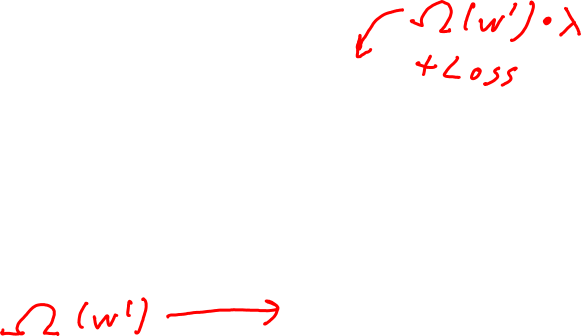 Ω(w')·λ
+Loss
Ω(w')